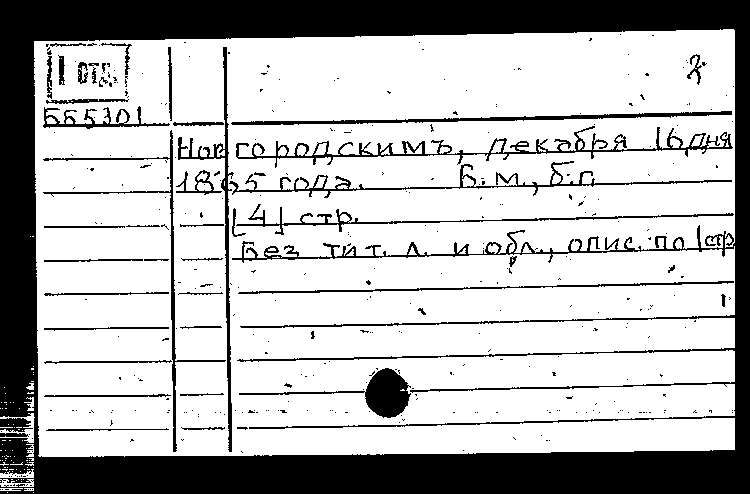 2
I отд.
Б55301
Новгородскимъ, декабря 16 дня
1865 года. Б.м., б.г.
[4] стр.
Без тит. л. и обл., опис. по 1 стр